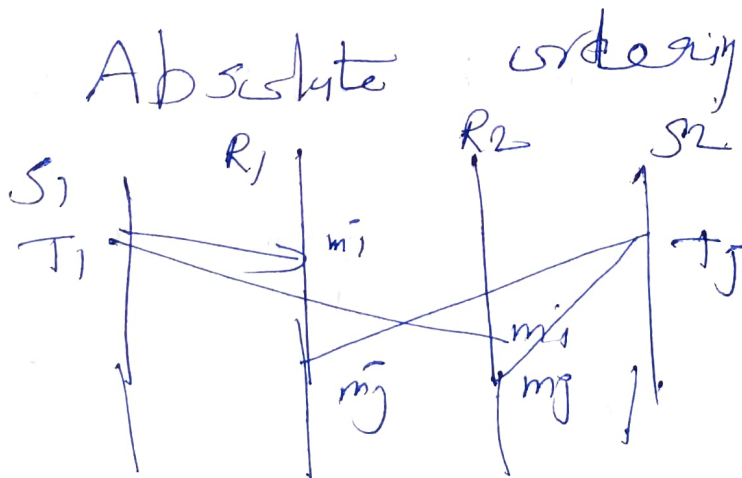 Absolute ordering
S1 R1 R2 S2
T1 mi Tj
mi
mj mj